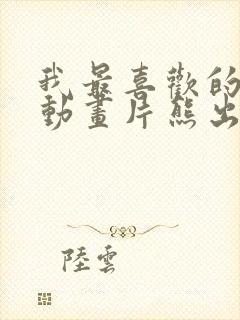 我最喜歡的
動畫片熊出
陸雲